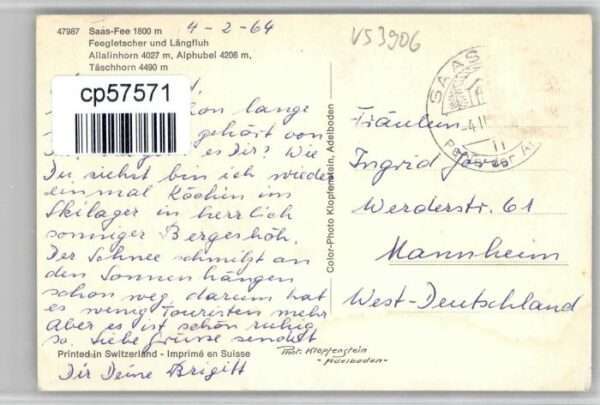 47987 Saas-Fee 1800 m
Feegletscher und Längfluh
Allalinhorn 4027 m, Alphubel 4206 m,
Täschhorn 4490 m
4-2-64
VS3906
cp57571
lange
gehört von
es Dir? Wie
Du siehst bin ich wieder
einmal Köchin im
Skilager in herrlich
sonniger Bergeshöh.
Der Schnee schmilzt an
den Sonnenhängen
schon weg, darum hat
es wenig Touristen mehr
Aber es ist schön ruhig
so. Liebe Grüsse sendet
Dir Deine Brigitt
Printed in Switzerland - Imprimé en Suisse
Color-Photo Klopfenstein, Adelboden
Phot. Klopfenstein
-Adelboden-
SAAS
Fräulein
Ingrid
Werderstr. 61
Mannheim
West-Deutschland